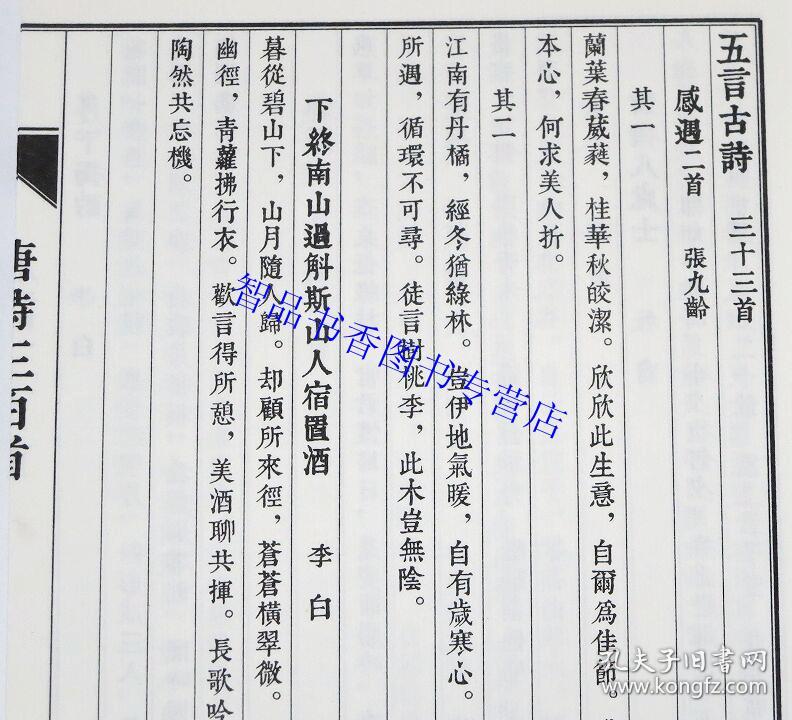 五言古詩 三十三首
感遇二首 張九齡
其一
蘭葉春葳蕤,桂華秋皎潔。欣欣此生意,自爾爲佳節。
本心,何求美人折。
其二
江南有丹橘,經冬猶綠林。豈伊地氣暖,自有歲寒心。
所遇,循環不可尋。徒言樹桃李,此木豈無陰。
下終南山過斛斯山人宿置酒 李白
暮從碧山下,山月隨人歸。却顧所來徑,蒼蒼橫翠微。
幽徑,青蘿拂行衣。歡言得所憩,美酒聊共揮。長歌吟
陶然共忘機。
唐詩三百首
智品书香图书专营店
孔夫子旧书网
www.kongfz.com